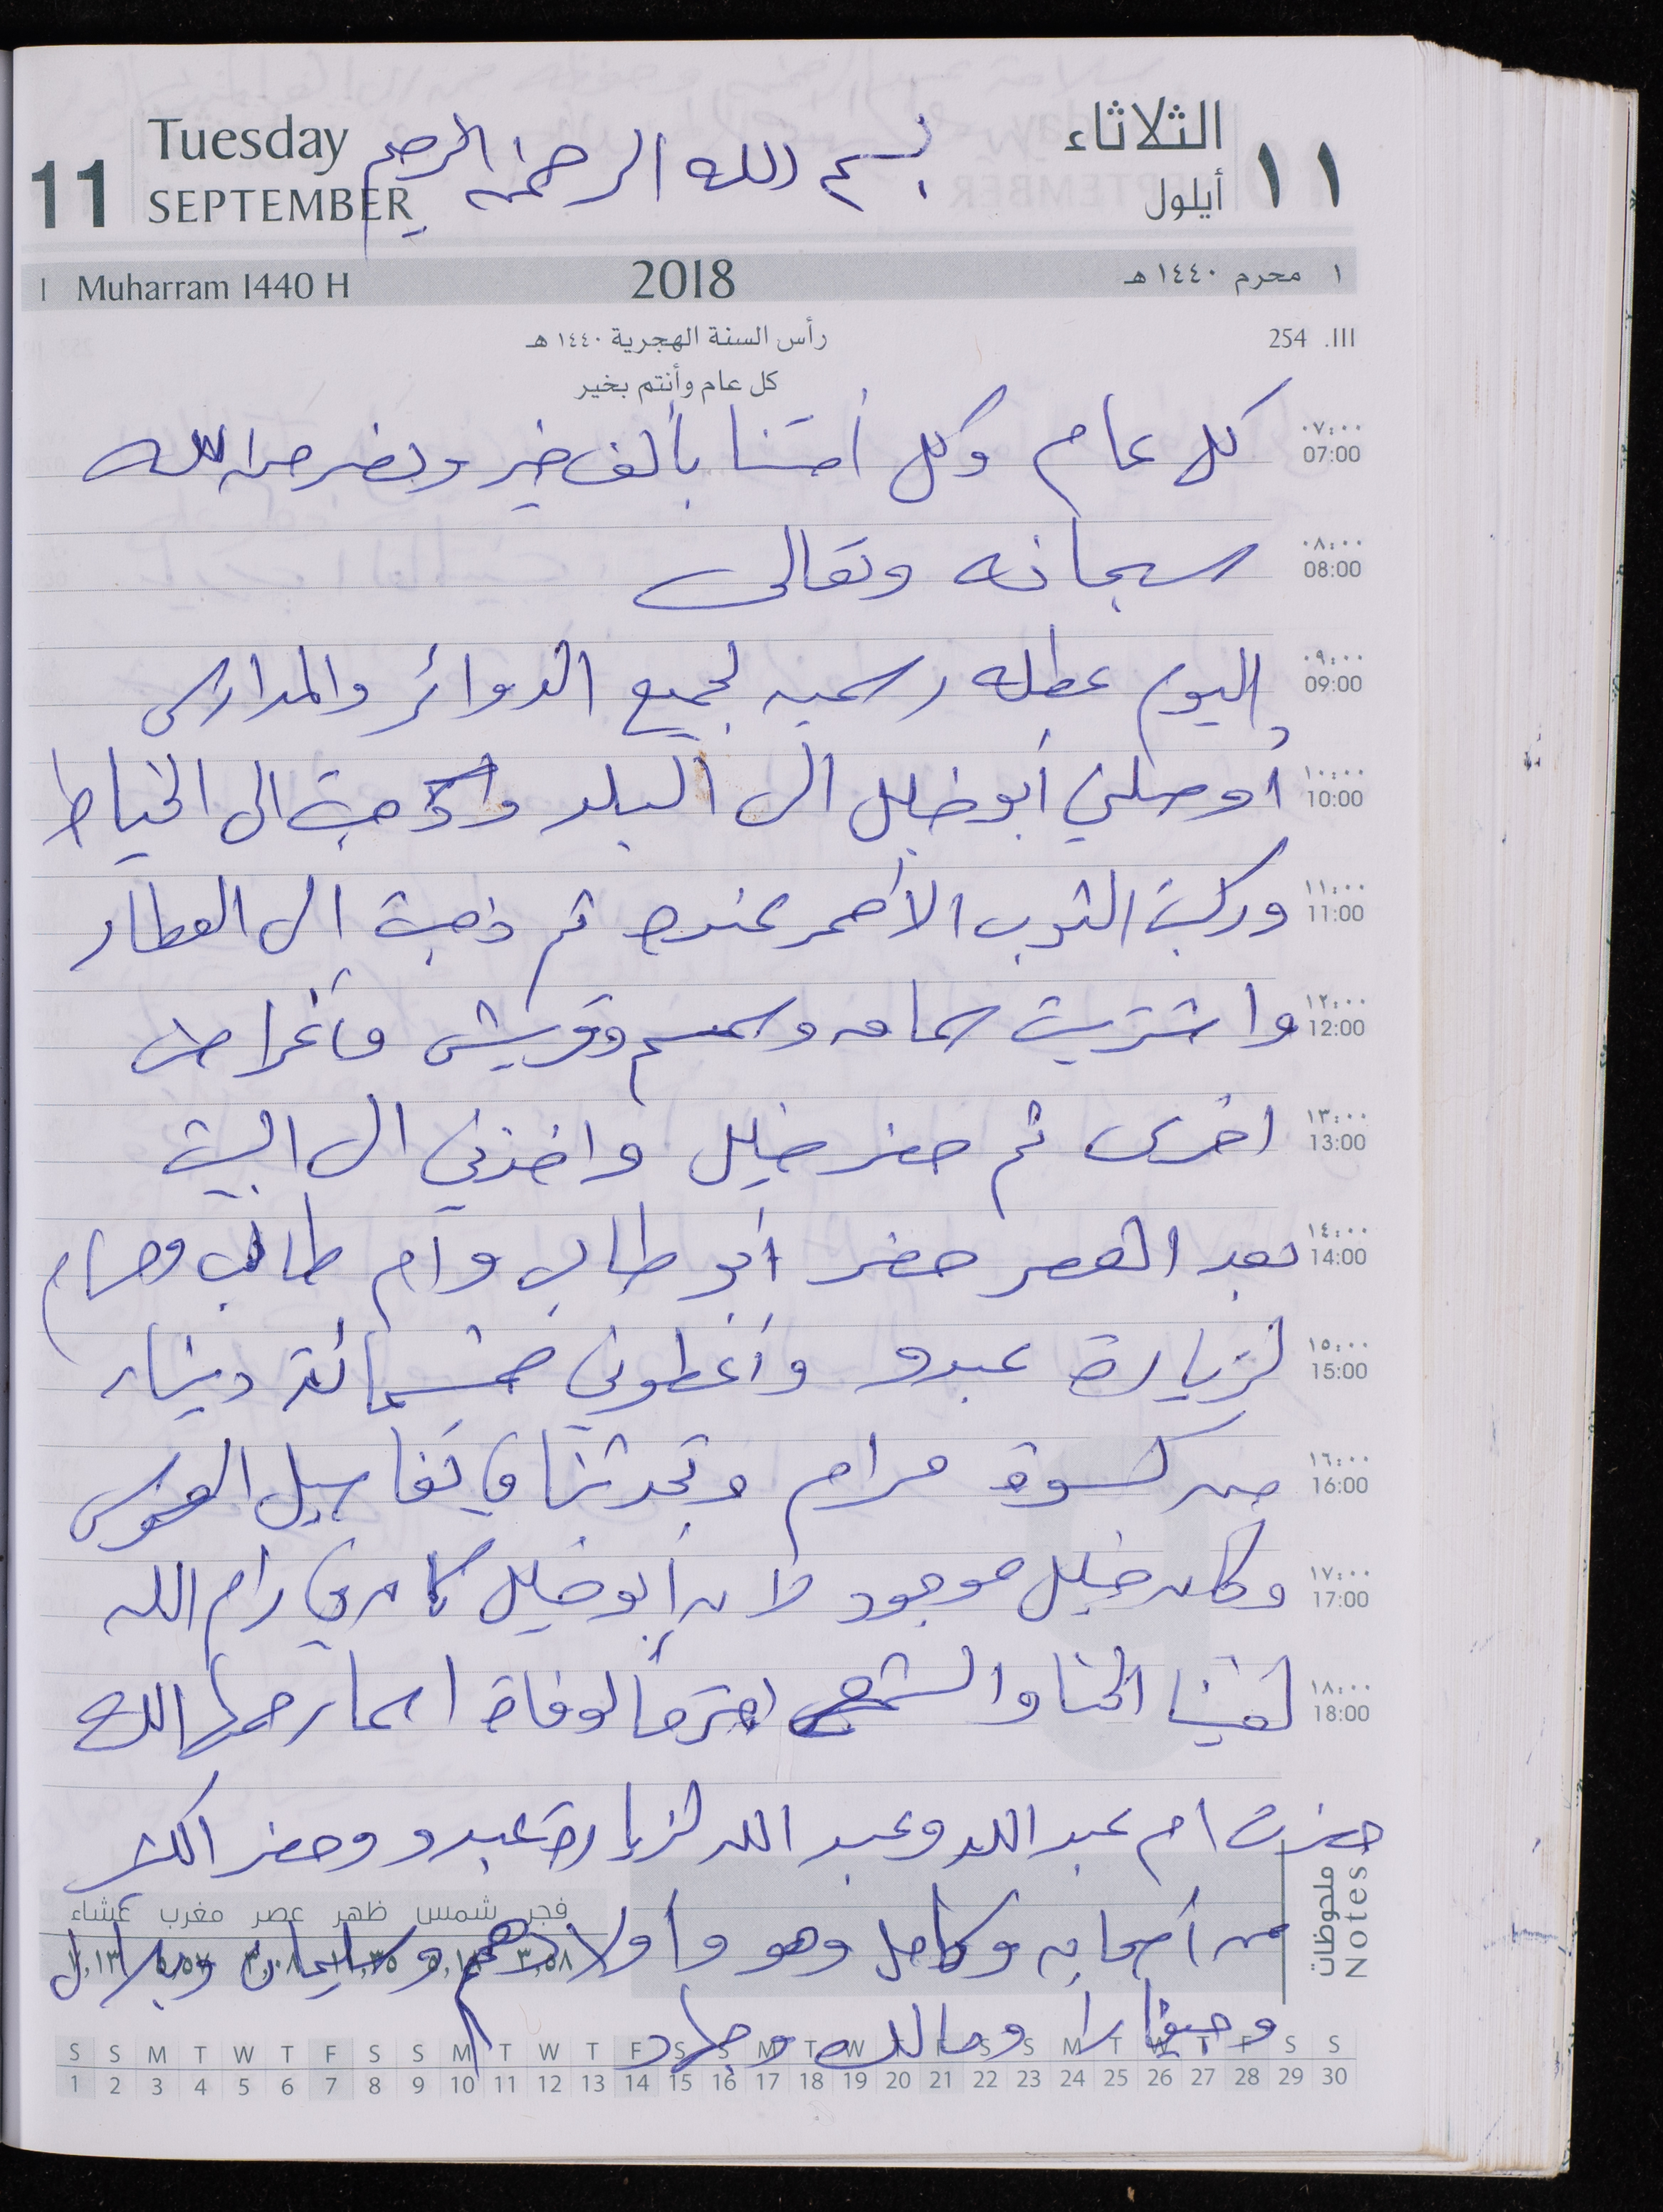 Tuesday بسم الله الرحمن الرحيم الثلاثاء
11 SEPTEMBER أيلول ١١
1 Muharram 1440 H 2018 ١ محرم ١٤٤٠ هـ
رأس السنة الهجرية ١٤٤٠ هـ 254 .III
كل عام وأنتم بخير
٠٧:٠٠ 07:00 كل عام وكل أمتنا بألف خير ونصر من الله
٠٨:٠٠ 08:00 سبحانه وتعالى
٠٩:٠٠ 09:00 اليوم عطله رسميه لجميع الدوائر والمدارس
١٠:٠٠ 10:00 أوصلني أبو خليل الى البلد وذهبت الى الخياط
١١:٠٠ 11:00 وركبت الثوب الأحمر عنده ثم ذهبت الى العطار
١٢:٠٠ 12:00 واشتريت سماقه وسمسم وقريش وأغراض
١٣:٠٠ 13:00 اخرى ثم حضر خليل واخذني الى البيت
١٤:٠٠ 14:00 بعد العصر حضر أبو طالب وام طالب ومرام
١٥:٠٠ 15:00 لزيارة عبدو وأعطوني خمسمائة دينار
١٦:٠٠ 16:00 من كسوة مرام وتحدثنا في تفاسيل العرس
١٧:٠٠ 17:00 وكان خليل موجود لان أبو خليل كان في رام الله
١٨:٠٠ 18:00 لغينا الحنا والشمع احترما لوفاة اسما رحمها الله
حضرت ام عبد الله وعبد الله لزيارة عبدو وحضر اكثر
من أصحابه وكامل وهو وأولادهم وسليمان وبلال
وجيفارا ومالك وجهاد
ملحوظات Notes
فجر شمس ظهر عصر مغرب عشاء
٣,٥٨
S S M T W T F S S M T W T F S S M T W T F S S M T W T F S S
1 2 3 4 5 6 7 8 9 10 11 12 13 14 15 16 17 18 19 20 21 22 23 24 25 26 27 28 29 30